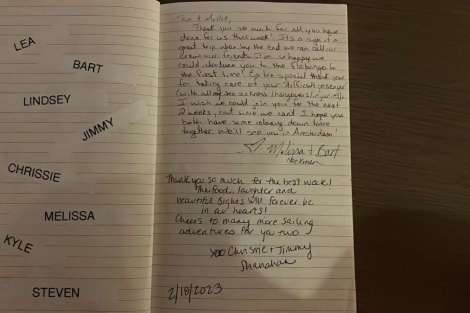 LEA
BART
LINDSEY
JIMMY
CHRISSIE
MELISSA
KYLE
STEVEN
Thank you so much for all you have
done for us this week! It's a sign of a
great trip when by the end we can call our
crew our friends. I'm so happy we
could introduce you to the
the first time! Extra special thank you
for taking care of your "difficult passenger"
with all my sea sickness
I wish we could join you for the next
2 weeks, but since we can't I hope you
both have some relaxing down time
together. We'll see you in Amsterdam!
♡ Melissa + Bart
Thank you so much for the best week!
The food, laughter and
beautiful sights will forever be
in our hearts!
Cheers to many more sailing
adventures for you two
xoo Chrissie + Jimmy
Shanahan
2/18/2023